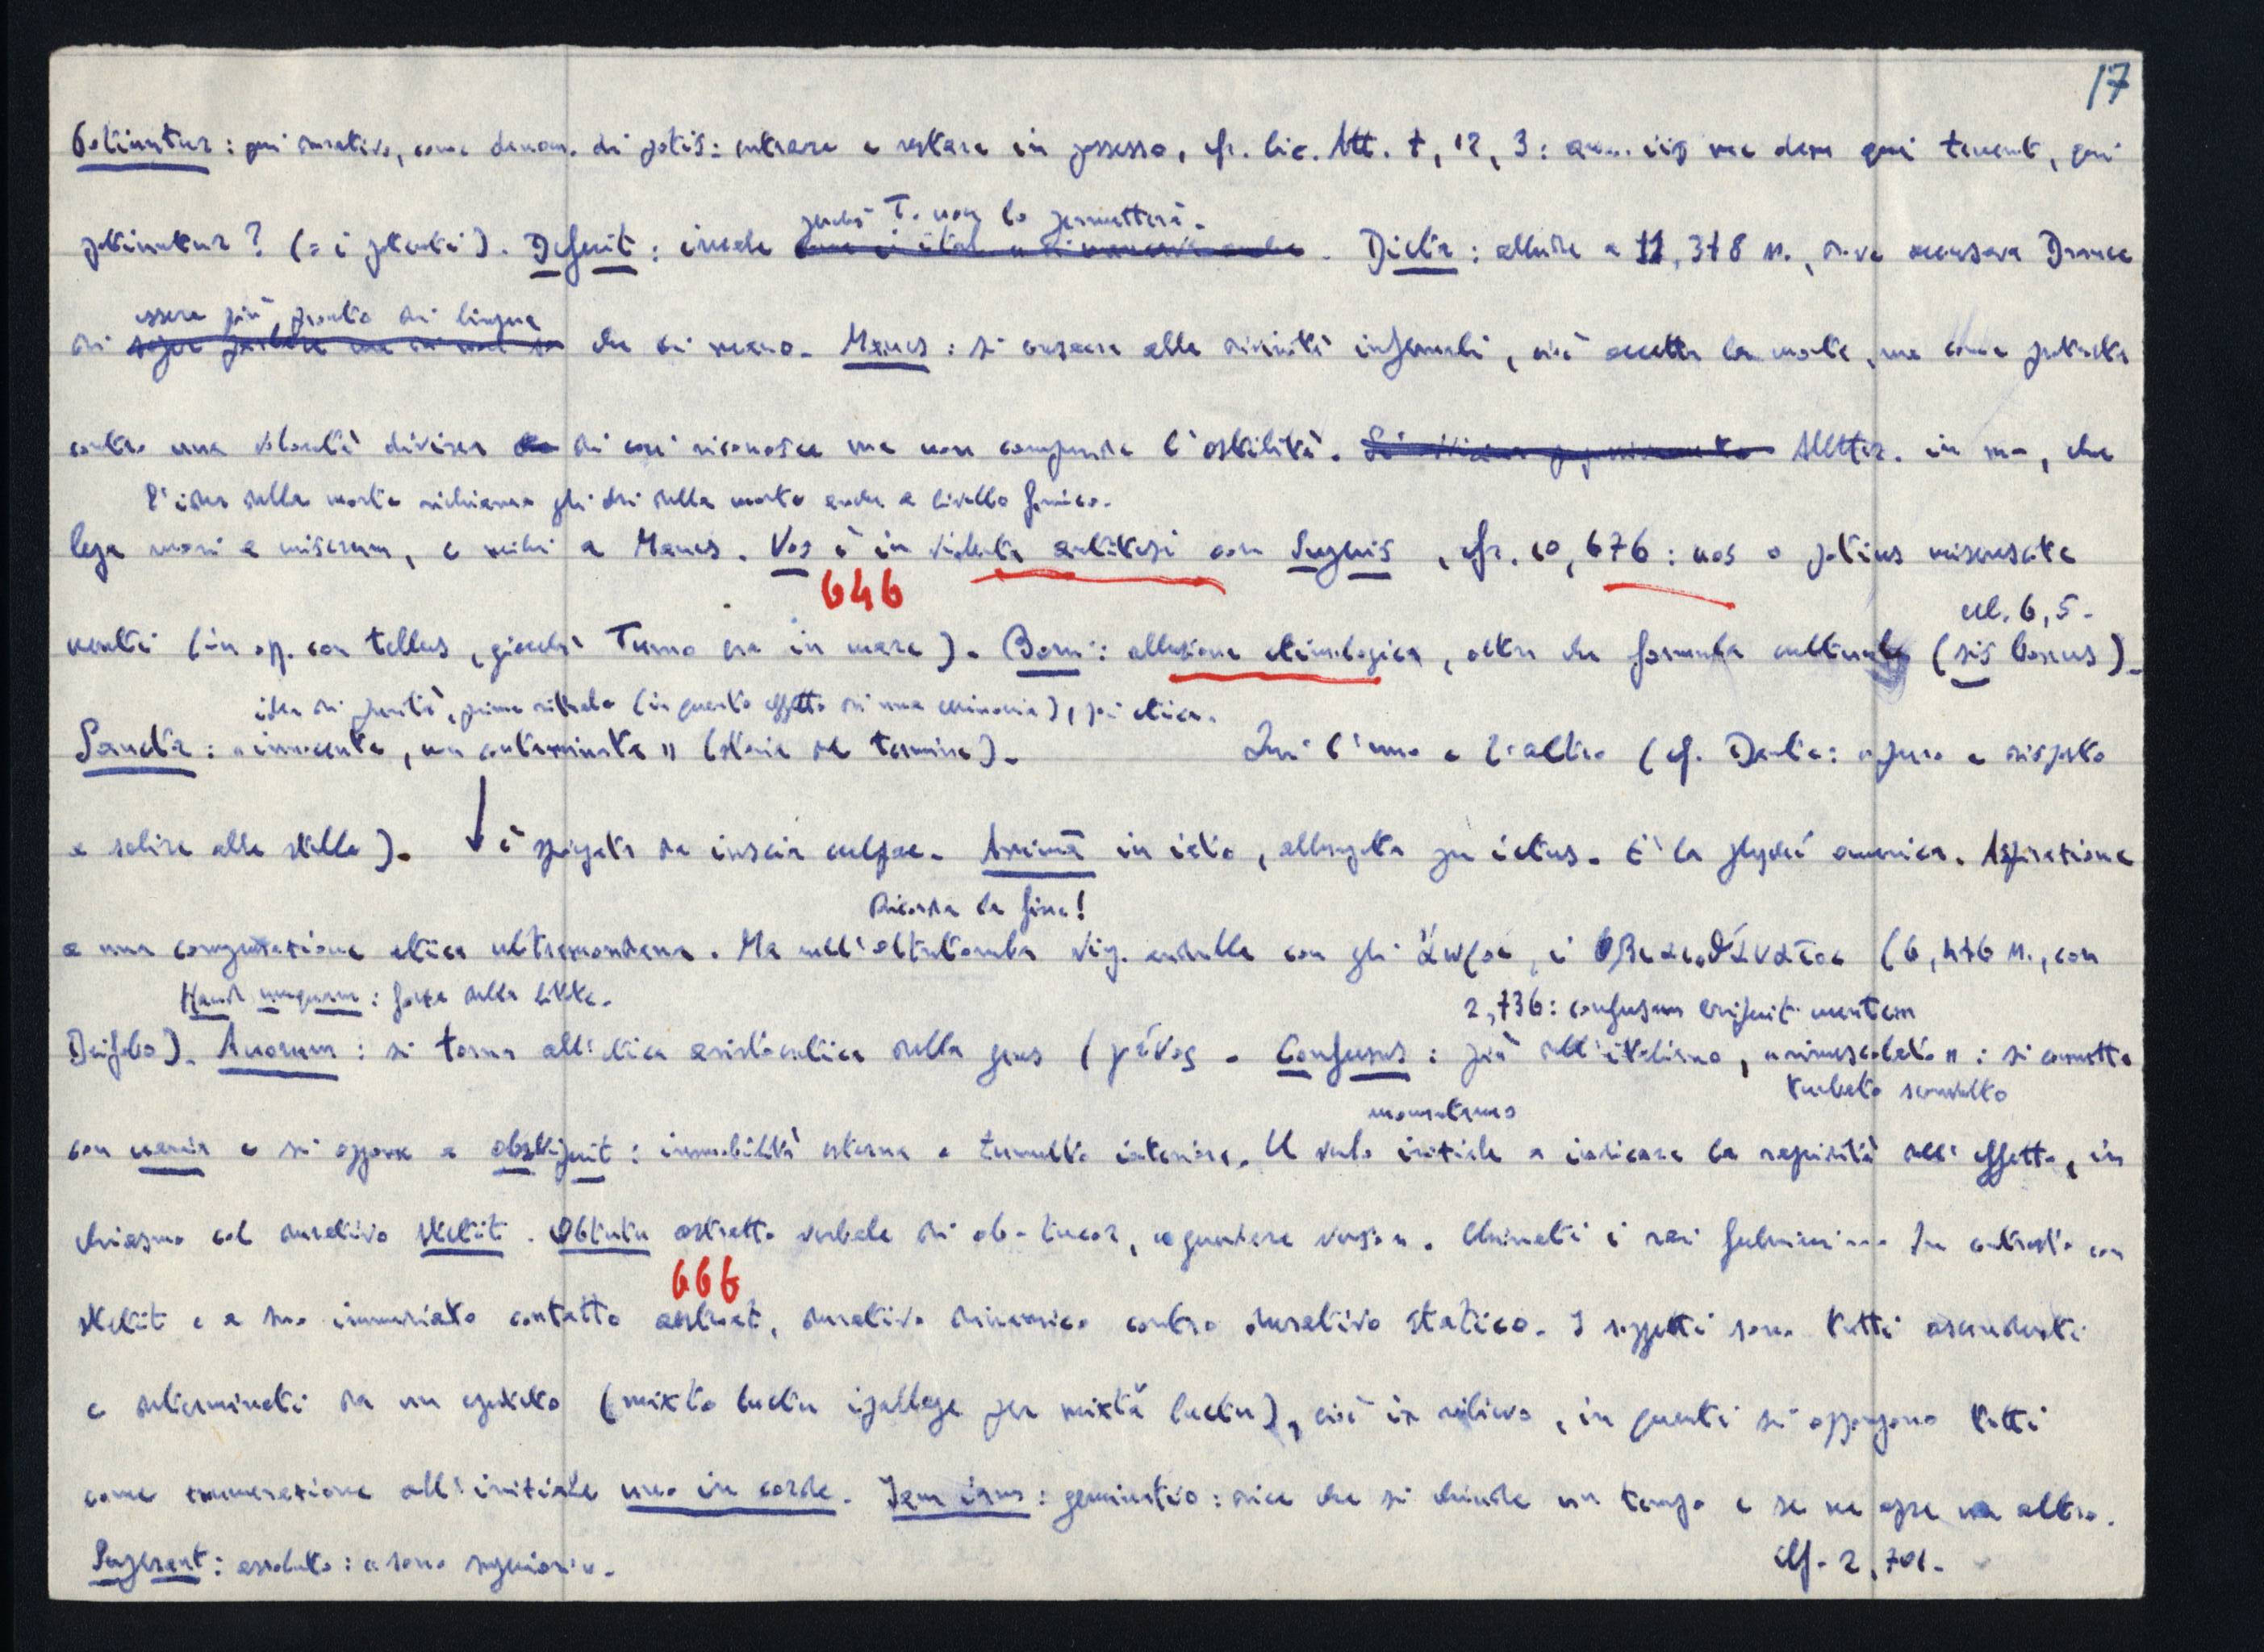 17
Potiuntur: qui durativo, come denom. di potis: entrare e restare in possesso, cfr. Cic. Att. 7, 12, 3: an iis me dem qui tenent, qui
perché T. non lo permetterà.
potiuntur? (= i potenti). Defuit: irreale. Dicta: allude a 11, 378 ss., dove accusava Drance
essere più pronto di lingua
di che di mano. Manes: si consacra alle divinità infernali, cioè accetta la morte, ma come protesta
contro una volontà divina di cui riconosce ma non comprende l'ostilità. Allitter. in m-, che
l'idea della morte richiama gli dei della morte anche a livello fonico.
lega mori a miserum, e mihi a Manes. Vos è in violenta antitesi con Superis, cfr. 10, 676: vos o potius miserescite
646
ecl. 6, 5.
venti (in opp. con tellus, giacché Turno era in mare). Boni: allusione etimologica, oltre che formula cultuale (sis bonus).
idea di purità, prima rituale (in quanto effetto di una cerimonia), poi etica.
Sancta: "innocente, non contaminata" (storia del termine). Qui l'uno e l'altro (cf. Dante: "puro e disposto
a salire alle stelle). ↓ è spiegato da inscia culpae. Animă in iato, allungata per ictus. È la ψυχή omerica. Aspirazione
Ricorda la fine!
a una compensazione etica ultramondana. Ma nell'oltretomba Virg. andrebbe con gli ἄωροι, i βιαιοθάνατοι (6, 476 ss., con
Haud unquam: forza della litote.
2, 736: confusam eripuit mentem
Deifobo). Avorum: si torna all'etica aristocratica della gens (γένος. Confusus: più dell'italiano, "rimescolato": si connette
turbato sconvolto
momentaneo
con varia e si oppone a obstipuit: immobilità esterna e tumulto interiore. Il verbo iniziale a indicare la rapidità dell'effetto, in
chiasmo col durativo stetit. Obtutu astratto verbale di ob-tueor, "guardare verso". Chinati i rai fulminei... In contrasto con
666
stetit e a suo immediato contatto aestuat, durativo dinamico contro durativo statico. I soggetti sono tutti ascendenti
e determinati da un epiteto (mixto luctu ipallage per mixta luctu), cioè in rilievo, in quanti si oppongono tutti
come enumerazione all'iniziale uno in corde. Iam iam: geminatio: dice che si chiude un tempo e se ne apre un altro.
Superant: assoluto: "sono superiori".
Cf. 2, 701.